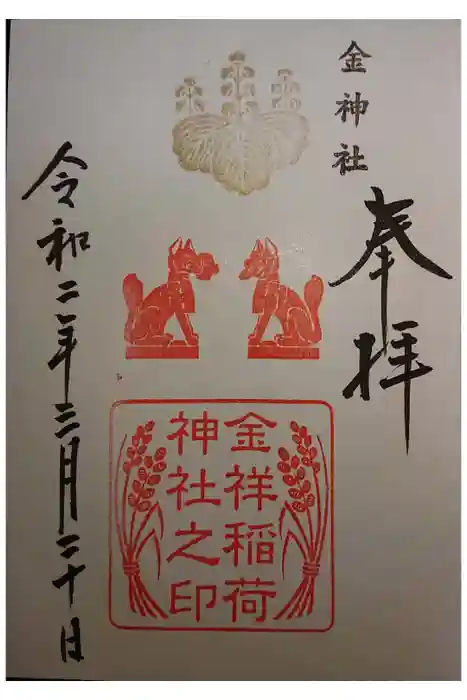 金神社
奉拝
金祥稲荷
神社之印
令和二年三月二十日